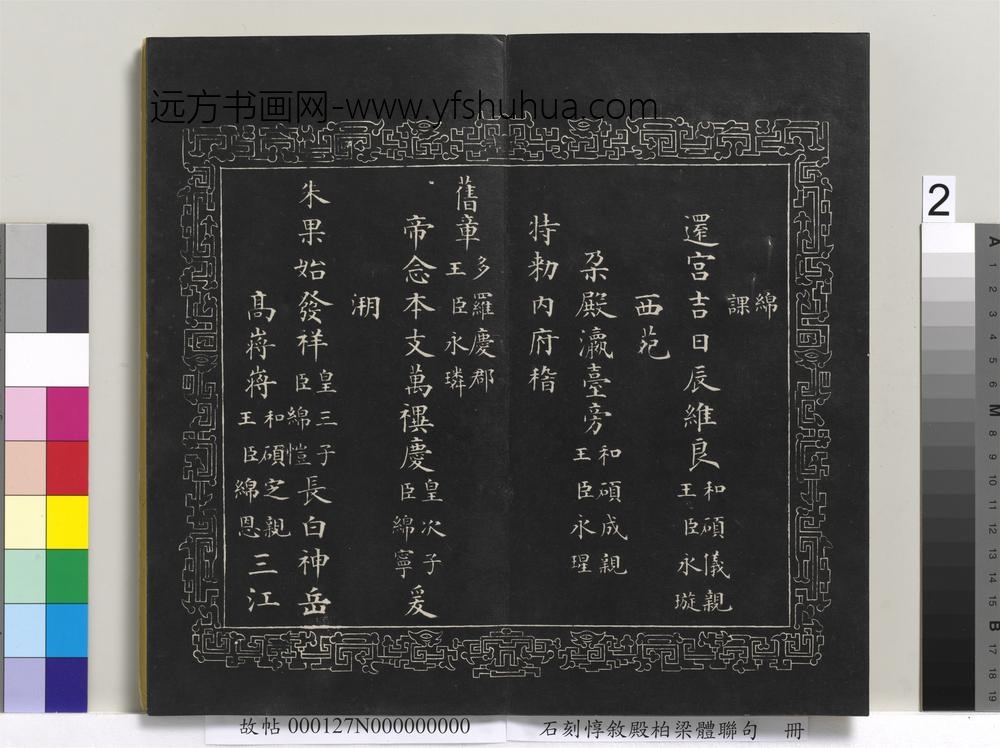 远方书画网-www.yfshuhua.com
綿
課
還宮吉日辰維良和碩儀親
王臣永璇
西苑
朶殿瀛臺旁和碩成親
王臣永瑆
特勅内府稽
舊章多羅慶郡
王臣永璘
帝念本支萬禩慶皇次子
臣綿寧爰
溯
朱果始發祥皇三子
臣綿愷長白神岳
高蔣蔣和碩定親
王臣綿恩三江
2
A
1
2
3
4
5
6
M
8
9
10
11
12
13
14
15
B
17
18
19
故帖 000127N000000000
石刻惇敘殿柏梁體聯句 冊